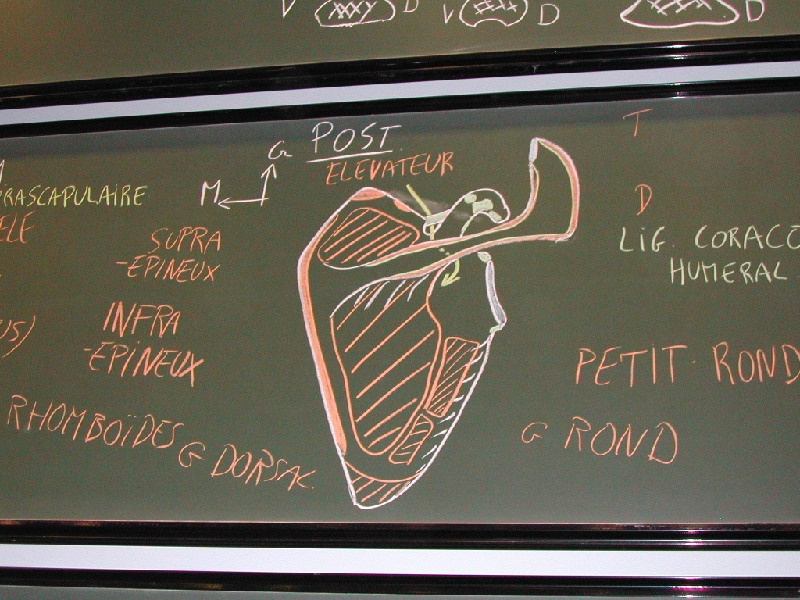 V D V D D
POST.
G
ELEVATEUR
M
T
D
SUPRA
-EPINEUX
LIG. CORACO
HUMERAL
INFRA
-EPINEUX
PETIT ROND
RHOMBOÏDES
G DORSAL
G ROND